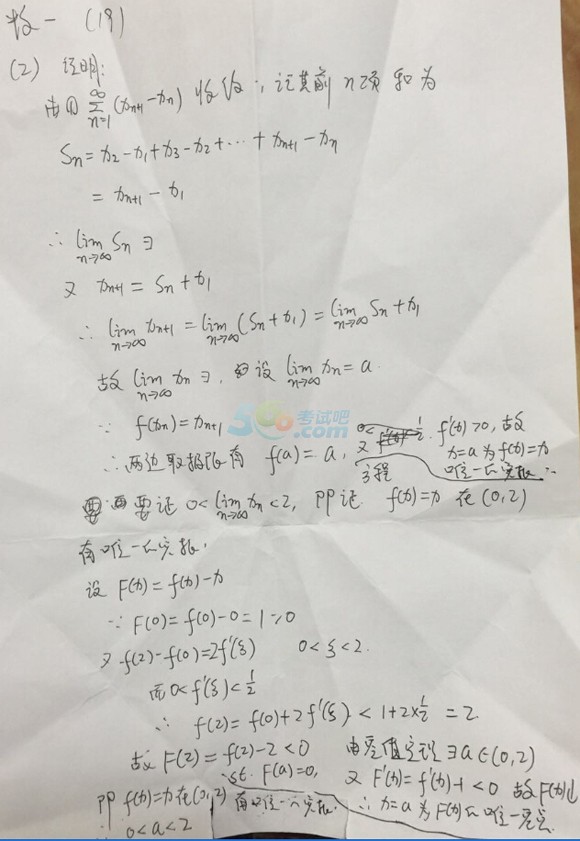 数一 (19)
(2) 证明:
由① ∑_{n=1}^{∞}(x_{n+1}-x_n) 收敛, 记其前n项和为
S_n = x_2-x_1+x_3-x_2+⋯+x_{n+1}-x_n
= x_{n+1}-x_1
∴ lim_{n→∞} S_n ∃
又 x_{n+1} = S_n+x_1
∴ lim_{n→∞} x_{n+1} = lim_{n→∞}(S_n+x_1) = lim_{n→∞} S_n+x_1
故 lim_{n→∞} x_n ∃, 设 lim_{n→∞} x_n = a.
∵ f(x_n) = x_{n+1}
考试吧
∴ 两边取极限有 f(a) = a, 又 f'(x)>0, 故
x=a 为 f(x)=x
方程 唯一的实根.
要证 0<lim_{n→∞} x_n<2, 即证 f(x)=x 在 (0,2)
有唯一的实根.
设 F(x) = f(x)-x
∵ F(0) = f(0)-0 = 1>0
又 f(2)-f(0) = 2f'(ξ) 0<ξ<2.
而 0<f'(ξ)<1/2
∴ f(2) = f(0)+2f'(ξ) < 1+2×1/2 = 2
故 F(2) = f(2)-2<0 由零值定理 ∃a∈(0,2)
st. F(a)=0, 又 F'(x) = f'(x)-1<0 故 F(x)↓
即 f(x)=x 在 (0,2) 有唯一的实根. ∴ x=a 为 F(x) 的唯一零点
∴ 0<a<2